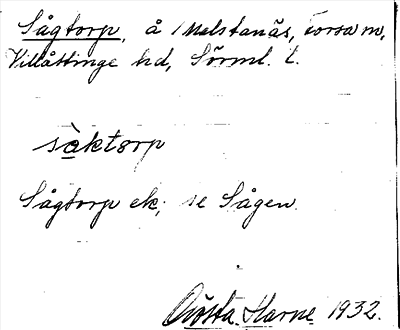 Sågtorp, å Melstanäs, Torsa sn,
Villåttinge hd, Sörml. l.
såktorp
Sågtorp ek, se Sågen.
Gösta Harne 1932.